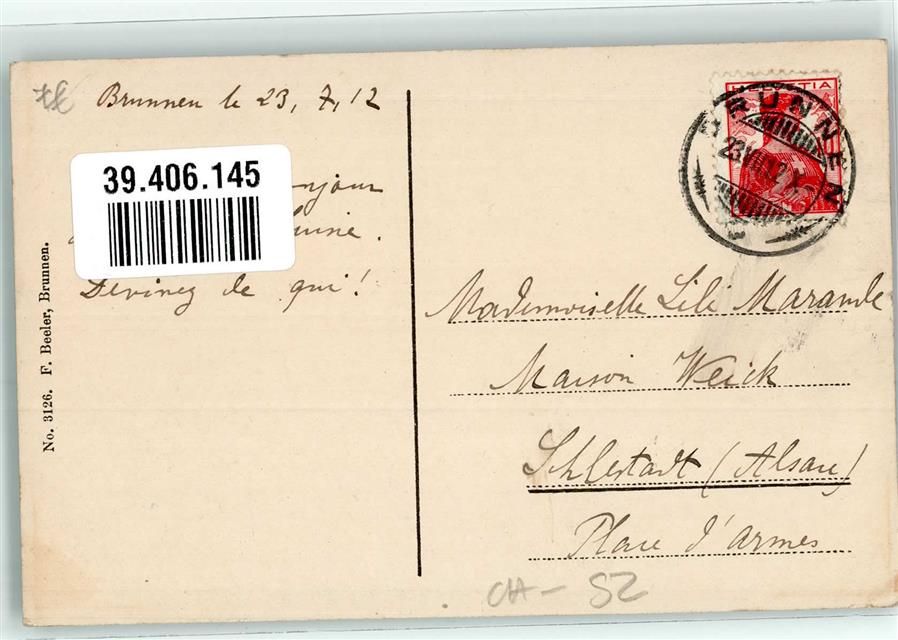 Brunnen le 23, 7, 12
39.406.145
Devinez de qui!
No. 3126. F. Beeler, Brunnen.
HELVETIA
BRUNNEN
Mademoiselle Lili Marande
Maison Weick
Schlestadt (Alsace)
Place d'armes
CH - SZ